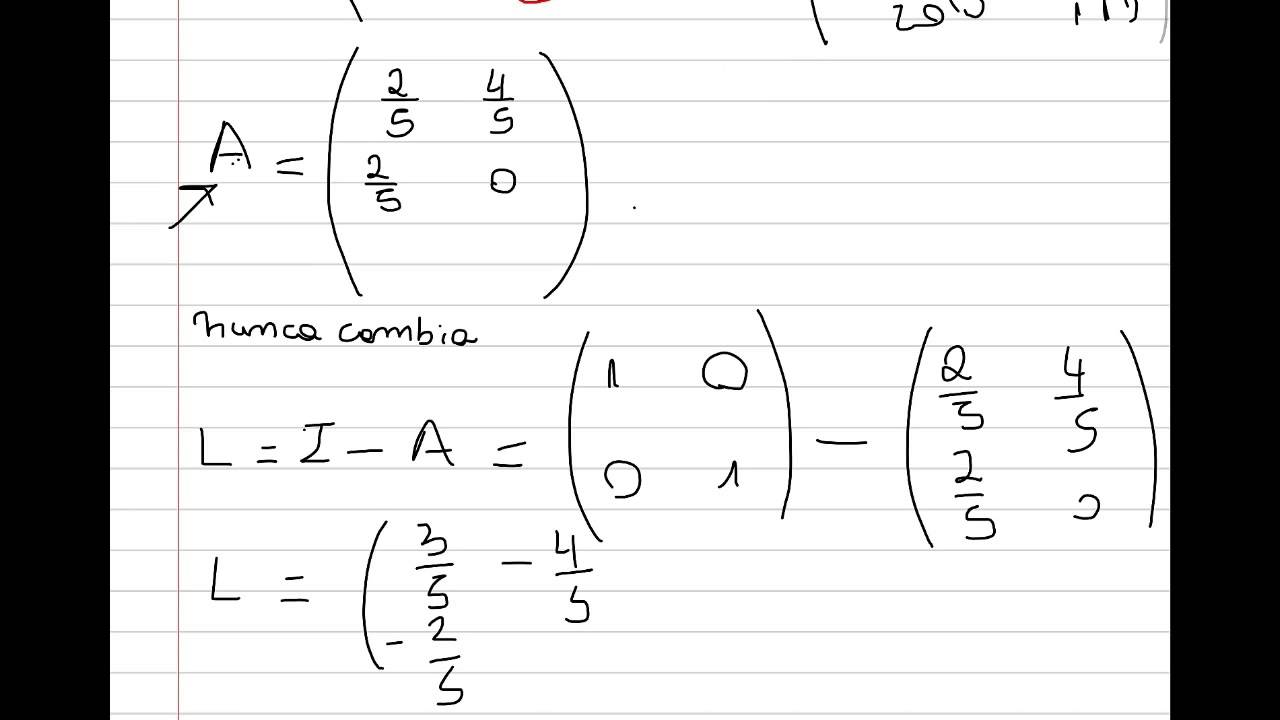 A = ( 2/5 4/5
2/5 0 )
nunca cambia
L = I - A = ( 1 0
0 1 ) - ( 2/5 4/5
2/5 0 )
L = ( 3/5 - 4/5
- 2/5